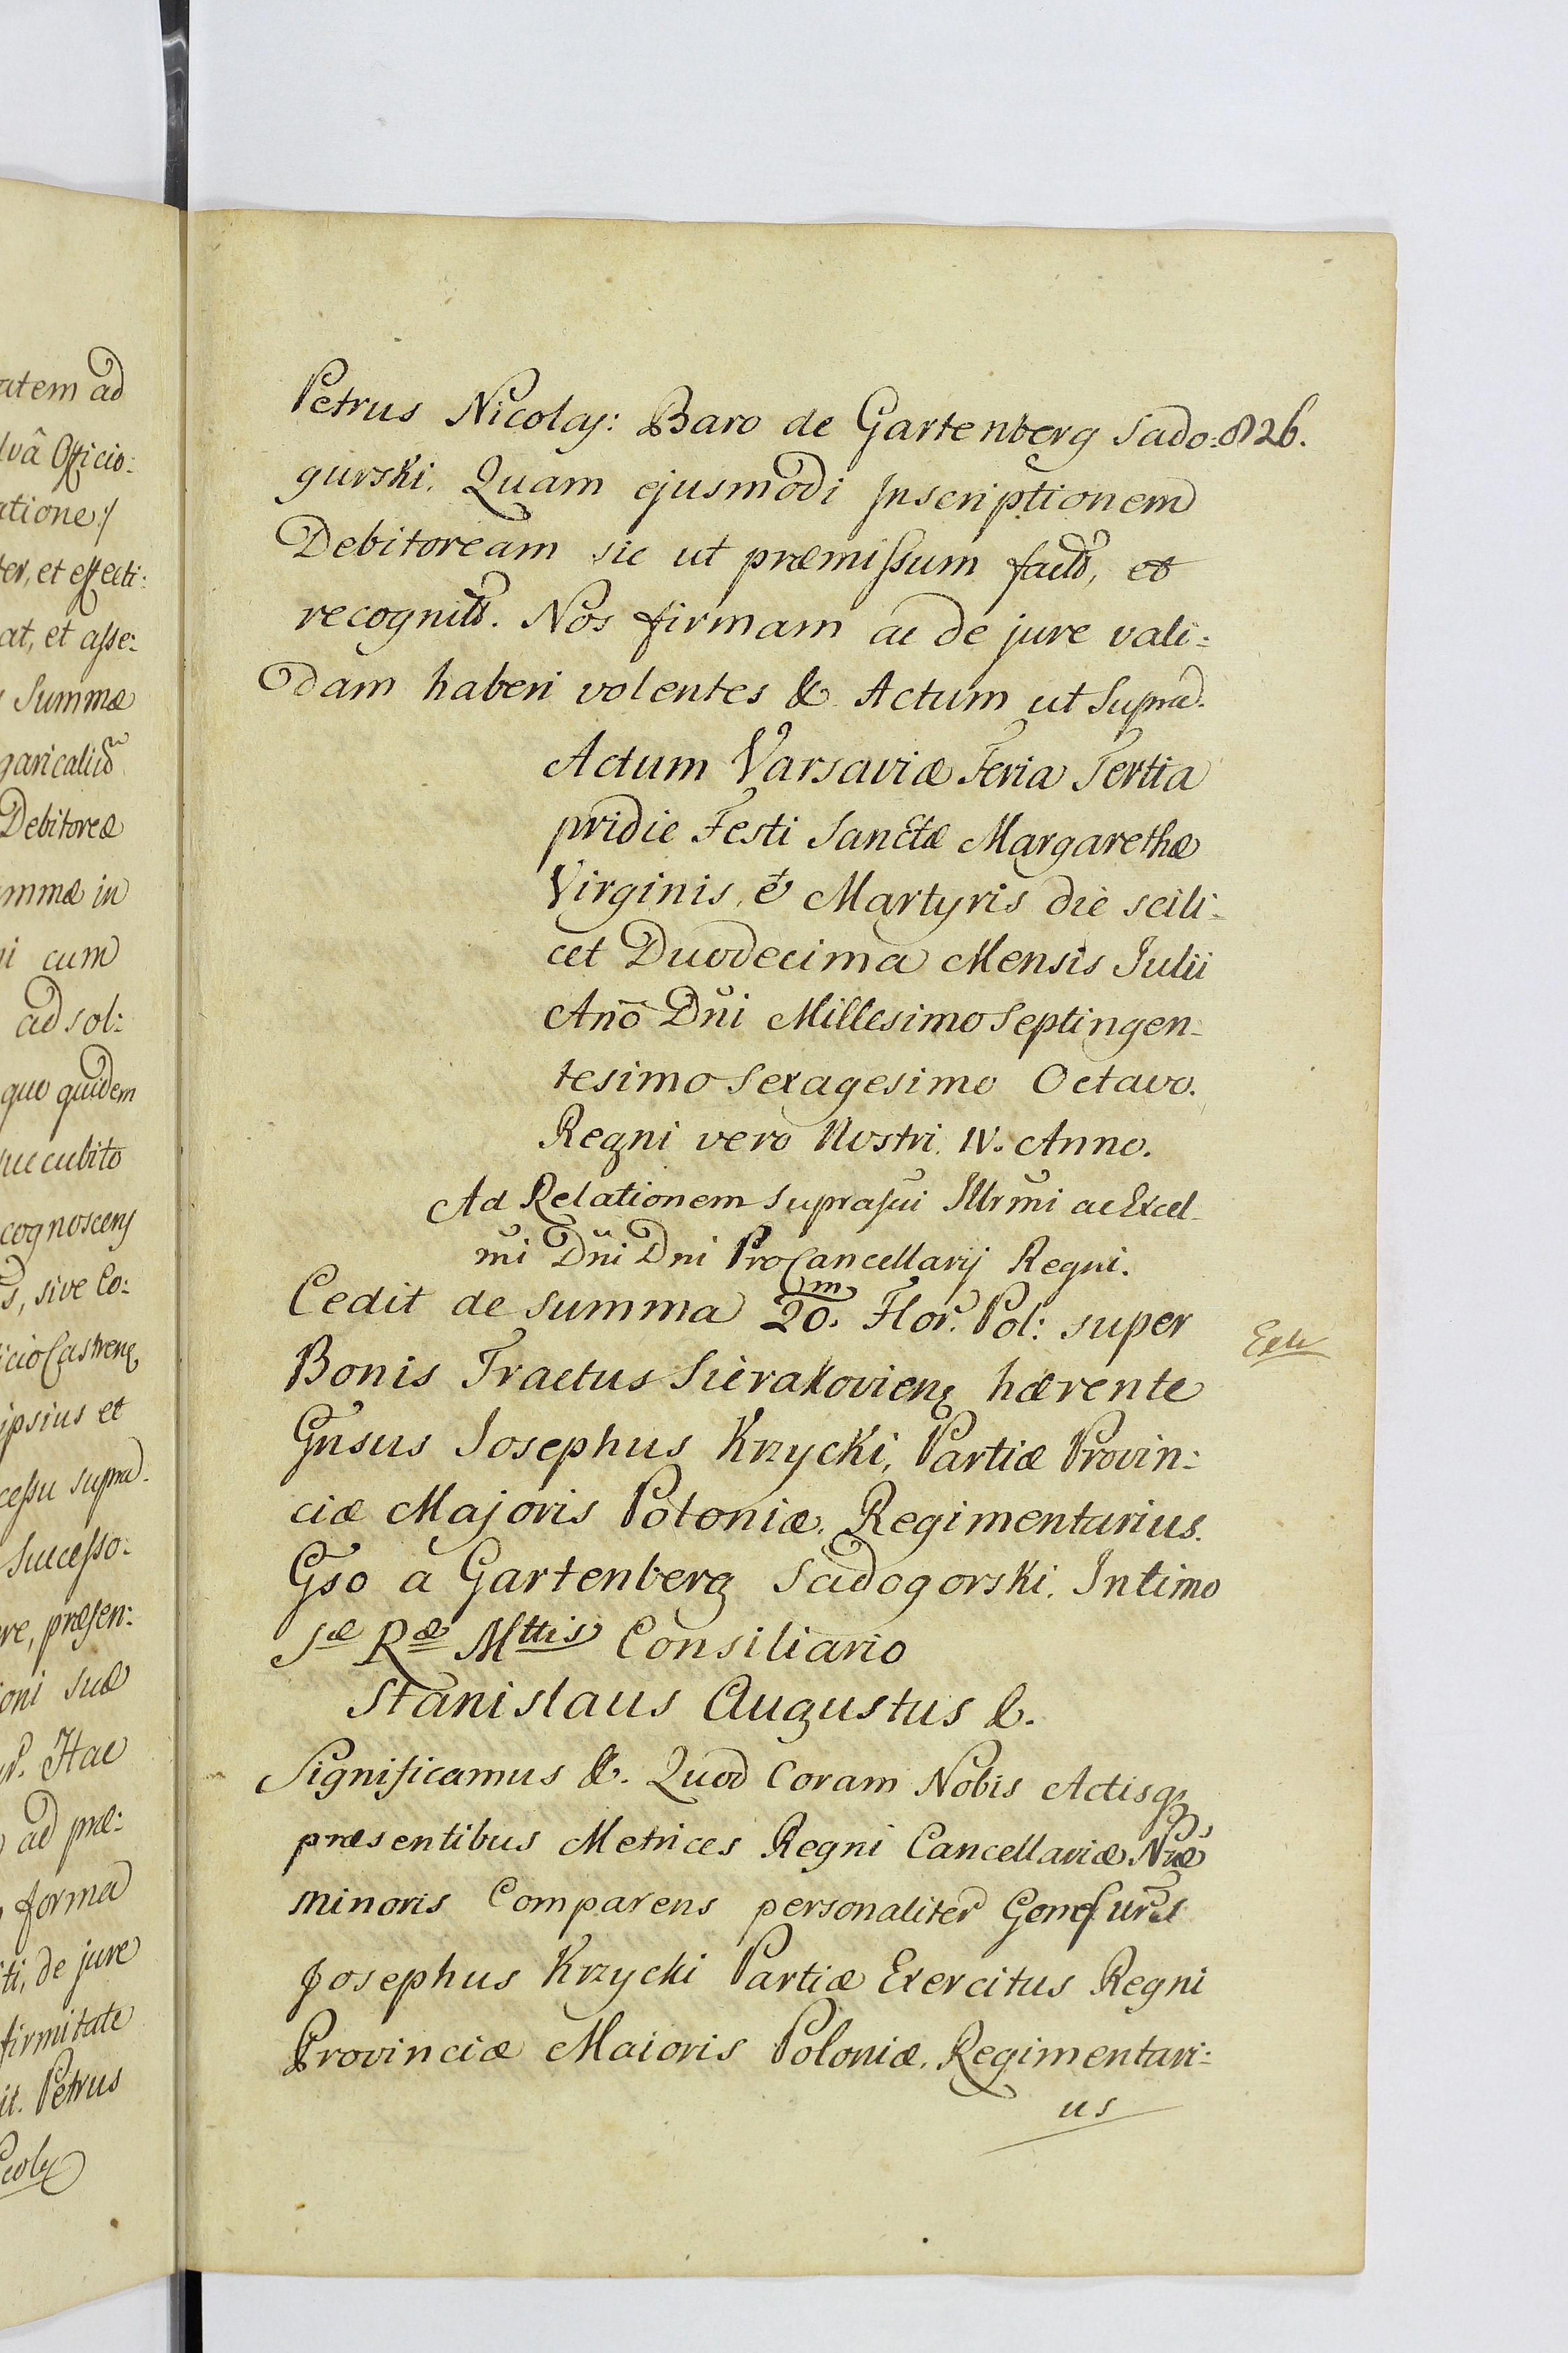 atem ad
lvâ Officio:
atione:/
ter, et effecti:
at, et asse:
Summæ
garicaliu
Debitoreæ
mmæ in
ni cum
ad sol:
quo quidem
succubito
cognoscens
s, sive Co:
icio Castrens
ipsius et
cessu supra
Successo:
re, præsen:
oni suæ
Hac
ad præ:
forma
iti, de jure
firmitate
it. Petrus
826.
Petrus Nicolaj: Baro de Gartenberg Sado:
gurski. Quam ejusmodi Inscriptionem
Debitoream sic ut præmissum factã, et
recognitã. Nos firmam ac de jure vali:
dam haberi volentes &. Actum ut Supra.
Actum Varsaviæ Feria Tertia
pridie Festi Sanctæ Margarethæ
Virginis, et Martyris die scili:
cet Duodecima Mensis Julii
Anõ Dñi Millesimo Septingen:
tesimo Sexagesimo Octavo.
Regni vero Nostri IV. Anno.
Ad Relationem suprasui Illrmi ac Excel:
mi Dñi Dni ProCancellarij Regni.
Cedit de summa 20.m Flor. Pol: super
Bonis Tractus Sierakoviens hærente
Gnsus Josephus Krzycki, Partiæ Provin:
ciæ Majoris Poloniæ. Regimentarius.
Gso a Gartenberg Sadogorski. Intimo
Sæ Ræ Mttis Consiliario
Stanislaus Augustus &.
Significamus &. Quod Coram Nobis Actisq
præsentibus Metrices Regni Cancellariæ Nræ
minoris Comparens personaliter
Josephus Krzycki Partiæ Exercitus Regni
Provinciæ Maioris Poloniæ. Regimentari:
us